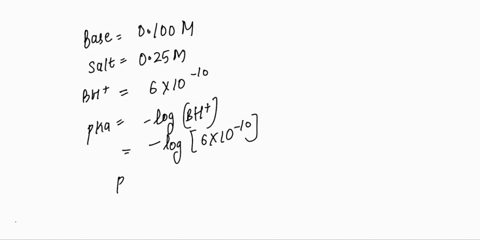 Base = 0.100 M
Salt = 0.25 M
BH⁺ = 6 × 10⁻¹⁰
pKa = -log (BH⁺)
= -log [6 × 10⁻¹⁰]
p